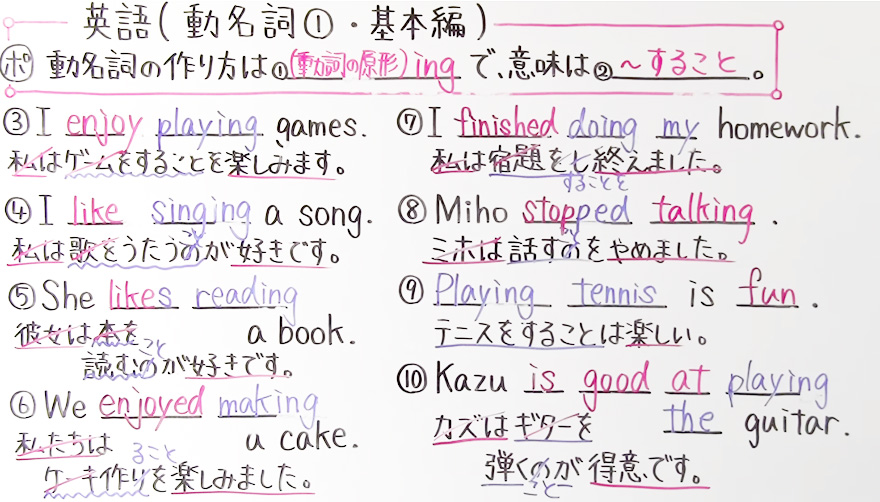 英語(動名詞①・基本編)
ポ 動名詞の作り方は①(動詞の原形)ingで、意味は②〜すること。
③I enjoy playing games.
私はゲームをすることを楽しみます。
④I like singing a song.
私は歌をうたうのが好きです。
こと
⑤She likes reading
a book.
彼女は本を
読むのが好きです。
こと
⑥We enjoyed making
a cake.
私たちは
ケーキ作りを楽しみました。
ること
⑦I finished doing my homework.
私は宿題をし終えました。
することを
⑧Miho stopped talking.
ミホは話すのをやめました。
こと
⑨Playing tennis is fun.
テニスをすることは楽しい。
⑩Kazu is good at playing
the guitar.
カズはギターを
弾くのが得意です。
こと